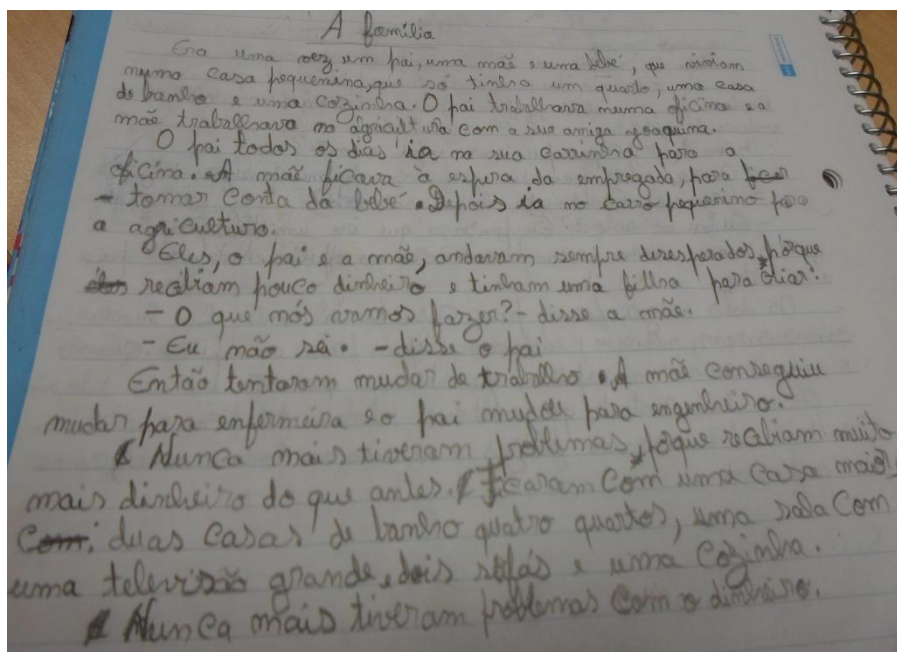 A família
Era uma vez um pai, uma mãe e uma bebé, que viviam
numa casa pequenina, que só tinha um quarto, uma casa
de banho e uma cozinha. O pai trabalhava numa oficina e a
mãe trabalhava na agricultura com a sua amiga
O pai todos os dias ia na sua carrinha para a
oficina. A mãe ficava à espera da empregada, para
tomar conta da bebé. Depois ia no carro pequenino para
a agricultura.
Eles, o pai e a mãe, andavam sempre desesperados, porque
recebiam pouco dinheiro e tinham uma filha para criar!
- O que nós vamos fazer? - disse a mãe.
- Eu não sei. - disse o pai
Então tentaram mudar de trabalho. A mãe conseguiu
mudar para enfermeira e o pai mudou para engenheiro.
Nunca mais tiveram problemas, porque recebiam muito
mais dinheiro do que antes. Ficaram com uma casa maior,
duas casas de banho quatro quartos, uma sala com
uma televisão grande, dois sofás e uma cozinha.
Nunca mais tiveram problemas com o dinheiro.